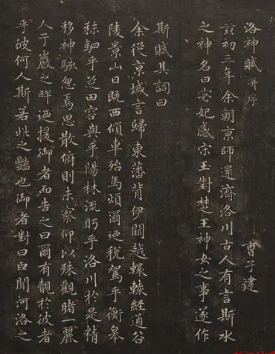 洛神賦 并序 曹子建
黃初三年余朝京師還濟洛川古人有言斯水
之神名曰宓妃感宋玉對楚王神女之事遂作
斯賦其詞曰
余從京域言歸東藩背伊闕越轘轅經通谷
陵景山日既西傾車殆馬煩爾迺稅駕乎蘅皋
秣駟乎芝田容與乎陽林流眄乎洛川於是精
移神駭忽焉思散俯則未察仰以殊觀睹一麗
人于巖之畔迺援御者而告之曰爾有覿於彼者
乎彼何人斯若此之豔也御者對曰臣聞河洛之